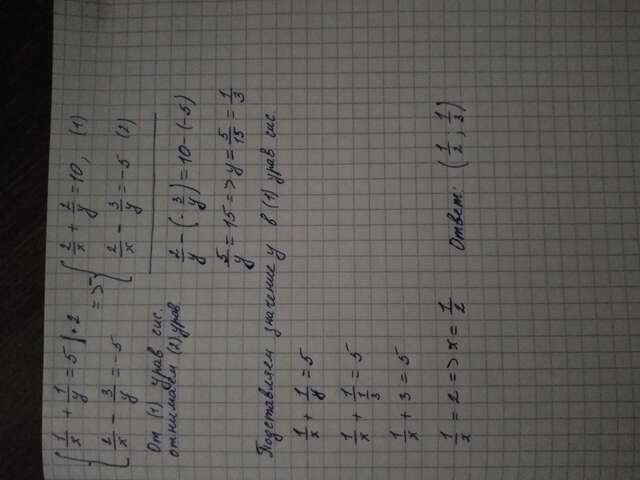 { 1/x + 1/y = 5 | • 2
2/x - 3/y = -5
=>
{ 2/x + 2/y = 10, (1)
2/x - 3/y = -5 (2)
От (1) урав сис.
отнимаем (2) урав
2/y - (- 3/y) = 10 - (-5)
5/y = 15 => y = 5/15 = 1/3
Подставляем значение y в (1) урав сис
1/x + 1/y = 5
1/x + 1/(1/3) = 5
1/x + 3 = 5
1/x = 2 => x = 1/2
Ответ: (1/2 ; 1/3)